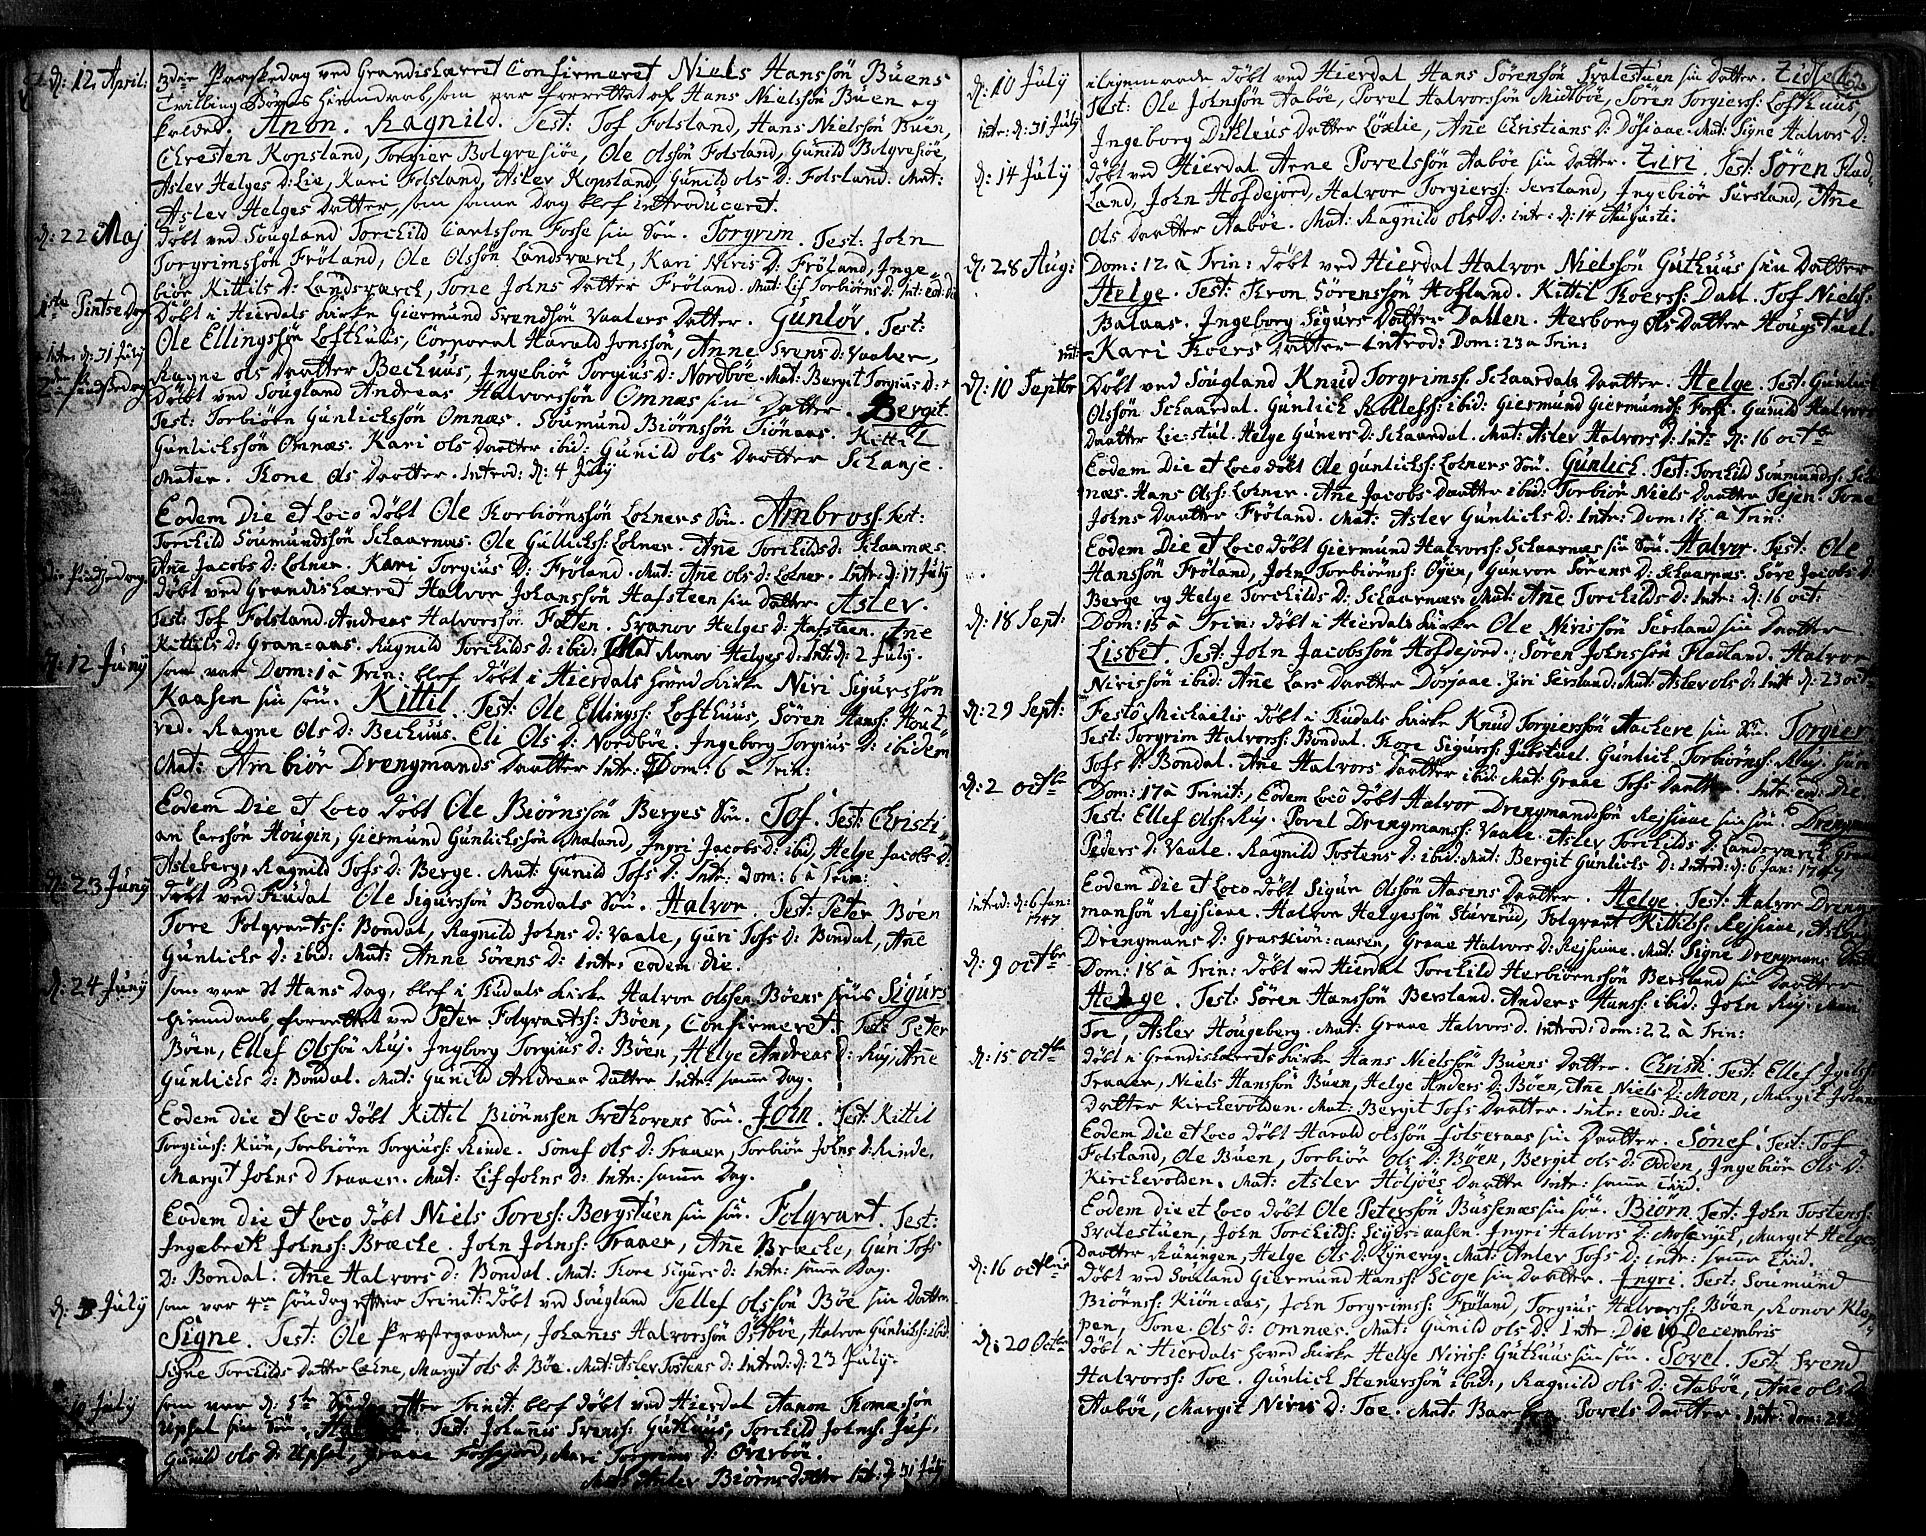 d: 12 April: 3die Paaskedag ved Grandisherret Confirmeret Niels Hanssön Büens
Tvilling Börns hiemdaab, som var forrettet af Hans Nielssön Büen og
kaldet. Anon. Ragnild. Test: Tof Folsland, Hans Nielssön Büen,
Christen Kopsland, Torgier Bolgvesiöe, Ole Olssön Folsland, Gunild Bolgvesiöe,
Aslev Helges D: Lie, Kari Folsland, Aslev Kopsland, Gunild ols D: Folsland. Mat:
Aslev Helges Datter, som samme Dag blef introduceret.
d: 22 Maj Döbt ved Sougland Torchild Carlssön Fosse sin Sön. Torgrim. Test: John
Torgrimssön Fröland, Ole Olssön Landsværck, Kari Niris D: Fröland, Inge
biör Kittils D: Landsværck, Tone Johns Datter Fröland. Mat: Lif Torbiörns D: Int: eod: die
1te Pintse Dag Döbt i Hierdals Kirke Giermund Svendsön Vaalers Datter. Gunlov. Test:
Ole Ellingssön Lofthuus, Corporal Harald Jonssön, Anne Svens d: Vaaler,
Intr: d: 31 July Ragne ols Daatter Bechuus, Ingebiör Torgius D: Nordböe. Mat: Bergit Torgius D:
2den Pindsedag Döbt ved Sougland Andreas Halvorssön Omnæs sin Datter. Bergit.
Test: Torbiörn Gunlichssön Omnæs. Soumund Biörnssön Tiönaas. Kittil
Gunlichssön Omnæs. Kari ols Daatter ibid: Gunild ols Daatter Schanje.
Mater. Tone Ols Daatter. Introd: d: 4 July
Eodem Die et Loco döbt Ole Torbiörnssön Lohners Sön. Ambross. Test:
Torchild Soumundssön Schaarnæs. Ole Gullichss: Lohner. Anne Torchilds d: Schaarnæs.
Ane Jacobs d: Lohner. Kari Torgius D: Fröland. Mat: Anne ols d: Lohner. Intr: d: 17 July
3die Pindsedag Döbt ved Grandisherred Halvor Johanssön Hafsteen sin datter Aslev.
Test: Tof Folsland. Andreas Halvorssön Folsen. Svanov Helges D: Hafsteen. Ane
Kittils D: Gran=aas. Ragnild Torchilds D: ibid: Mat Ronov Helges D: Int: d: 2 July.
d: 12 Juny som var Dom: 1 à Trin: blef döbt i Hierdals Hoved Kirke Niri Sigurssön
Kaasen sin sön. Kittil. Test: Ole Ellingss: Lofthuus, Sören Hanss:
ved. Ragne Ols D: Bechuus. Eli Ols D: Nordböe. Ingeborg Torgius D: ibidem
Mat: Ambiör Drengmands Daatter Intr: Dom: 6 à Trin:
Eodem Die et Loco döbt Ole Biörnssön Berges Sön. Tof. Test: Christi
an Larssön Hougin, Giermund Gunlichssön Maland, Ingri Jacobs D: ibid, Helge Jacobs D:
Asleberg, Ragnild Tofs D: Berge. Mat: Gunild Tofs D: Intr: Dom: 6 à Trin:
d: 23 Juny Döbt ved Tudal Ole Sigurssön Bondals Sön. Halvor. Test: Peter Böen
Tore Folqvartss: Bondal, Ragnild Johns D: Vaale, Guri Tofs D: Bondal, Ane
Gunlichs D: ibid: Mat: Anne Sörens D: Intr: eodem die.
d: 24 Juny som var St Hans Dag, blef i Tudals Kirke Halvor olssen Böens söns Sigurs
hiemdaab, forrettet ved Peter Folqvartss: Böen, Confirmeret. Test: Peter
Böen, Ellef Olssön Ruj. Ingborg Torgius D: Böen, Helge Andreas d: Ruj, Ane
Gunlichs D: Bondal. Mat: Gunild Andreas Datter Intr: samme Dag.
Eodem die et Loco döbt Kittil Biörnssen Frethovens Sön. John. Test: Kittil
Torgiuss: Kiön, Torbiörn Torgiuss: Rinde. Sönef ols D: Traaer, Torbiör Johns D: Rinde,
Margit Johns d Traaer. Mat: Lif Johns D: Intr: samme Dag.
Eodem die et Loco döbt Niels Toress: Bergstuen sin sön. Folqvart. Test:
Ingebrekt Johnss: Bræche. John Johnss: Traaer, Ane Bræche, Guri Tofs
D: Bondal. Ane Halvors d: Bondal. Mat: Tore Sigurs d: Intr: samme Dag.
d: 3 July som var 4de söndag efter Trinit: Döbt ved Sougland Tellef olssön Böe sin Datter.
Signe. Test: Ole Prestegaarden, Johanis Halvorssön Östböe, Halvor Gunlichss: ibid.
Signe Torchilds Datter Lohne, Margit ols D: Böe. Mat: Aslev Tostens D: Introd: d: 23 July.
10 July som var d: 5te Söndag efter Trinit: blef döbt ved Hierdal Aanon Thomæssön
Uphol sin Sön. Test: Johannis Svenss: Guthuus, Torchild Johnss: Juf,
Gunild ols D: Uphol, Graae Fosfjord, Mari Torgrims D: Överböe.
Mat: Aslev Biörns Datter Int: d: 31 July
d: 10 July iligemaade döbt ved Hierdal Hans Sörenssön Svalestuen sin Datter. Zidle 62
Test: Ole Johnssön Aaböe, Povel Halvorssön Midböe, Sören Torgierss: Lofthuus,
intr: d: 31 July Ingeborg Dithleus Datter Löxlie, Ane Christians D: Dösjaae. Mat: Signe Halvors D:
d: 14 July Döbt ved Hierdal Arne Povelssön Aaböe sin Datter. Ziri. Test: Sören Flad-
Land, John Hofdejord, Halvor Torgierss: Sersland, Ingebiör Sersland, Ane
Ols Daatter Aaböe. Mat: Ragnild ols D: intr: d: 14 Augusti.
d: 28 Aug: Dom: 12 à Trin: döbt ved Hierdal Halvor Nielssön Guthuus sin Daatter
Helge. Test: Tron Sörenssön Hofland. Kittil Toerss: Dall. Tof Nielss:
Balaas. Ingeborg Sigurs Daatter Dahlen. Herborg Ols Daatter Hougstuel.
Mat: Kari Toers Daatter Introd: Dom: 23 a Trin:
d: 10 Septbr Döbt ved Sougland Knud Torgrimss: Schaardals Daatter. Helge. Test: Gunlich
Olssön Schaardal. Gunlich Rollefss: ibid: Giermund Giermunds: Forb. Gunild Halvors
Daatter Lie=stul. Helge Guners D: Schaardal. Mat: Aslev Halvors D: Intr d: 16 octbr
Eodem Die et Loco döbt Ole Gunlichss: Lohners Sön. Gunlich. Test: Torchild Soumundss: Schaar
næs. Hans Olss: Lohner. Ane Jacobs Daatter ibid: Torbiör Niels Daatter Tejen. Tone
Johns Daatter Fröland. Mat: Aslev Gunlichs D: Intr: Dom: 15 a Trin:
Eodem Die et Loco döbt Giermund Halvorss: Schaarnæs sin Sön. Halvor. Test: Ole
Hanssön Fröland, John Torbiörnss: Öyen, Gunvor Sörens D: Schaarnæs. Söre Jacobs D:
Berge og Helge Torchilds D: Schaarnæs. Mat: Anne Torchilds D: Intr: d: 16 oct:
d: 18 Sept: Dom: 15 à Trin: döbt i Hierdals Kirke Ole Nirissön Sersland sin Daatter.
Lisbet. Test: John Jacobssön Hofdejord. Sören Johnssön Fladland. Halvor
Nirissön ibid: Ane Lars Daatter Dörjaae. Ziri Sersland. Mat: Aslev ols d: Intr d: 23 octbr
d: 29 Sept: Festô Michaelis döbt i Tudals Kirke Knud Torgierssön Aachere sin Sön. Torgier
Test: Torgrim Halvorss: Bondal. Tore Sigurss: Jubstuel. Gunlich Torbiörnss: Ruj. Guri
Tofs D: Bondal. Ane Halvors Daatter ibid: Mat: Graae Tofs Daatter. Intr: eod: die
d: 2 octbr Dom: 17 a Trinit:, Eodem Locô döbt Halvor Drengmandsön Rejsiaae sin sön. Drengman
Test: Ellef Olss: Ruj. Povel Drengmanss: Vaale. Aslev Torchilds D: Landsværck. Graae
Peders D: Vaale. Ragnild Tostens D: ibid: Mat: Bergit Gunlichs D: Introd: d: 6 Jan: 1747
Eodem Die et Loco döbt Sigur Olssön Aasens Daatter. Helge. Test: Halvor Dreng-
introd: d: 6 Jan: 1747 mansön Rejsiaae. Halvor Helgessön Stuverud, Folqvart Kittilss: Rejsiaae, Aslau
Drengmans D: Graskiön=aasen, Graae Halvors D: Rejsiaae. Mat: Signe Drengmans
d: 9 octbr Dom: 18 à Trin: Döbt ved Hierdal Torchild Herbiörnssön Bersland sin Daatter
Helge. Test: Sören Hanssön Bersland. Anders Hanss: ibid. John Ruj. Mari
Toe, Aslev Hougeberg. Mat: Graae Halvors D. Introd: Dom: 22 à Trin:
d: 15 octbr Döbt i Grandisherrets Kirke Hans Nielssön Buens Datter. Christi. Test: Ellef
Traaer, Niels Hanssön Büen, Helge Anders D: Böen, Ane Niels D: Moen, Margit Johans
Datter Kirchevolden. Mat: Bergit Tofs Daatter. Intr: eod: Die
Eodem Die et Loco döbt Harald olssön Folseraas sin Daatter. Sönef. Test: Tof
Folsland, Ole Büen, Torbiör Ols D: Böen, Bergit ols D: Odden, Ingebiör Ols D:
Kirchevolden. Mat: Aslev Holjöes Daatter Intr: samme Tiid.
Eodem die et Loco döbt Ole Peterssön Busnæs sin sön. Biörn. Test: John Tostenss:
Svalestuen, John Torchilds: Seyds=aasen. Ingri Halvors D: Mosevryt, Margit Helges
Daatter Rüningen, Helge Ols D: Rynevig. Mat: Anlev Tofs D: intr: samme Tiid.
d: 16 octbris Döbt ved Souland Giermund Hanss: Scoje sin Daatter. Ingri. Test: Soumund
Biörnss: Kiön=aas, John Torgrimss: Fröland, Torgius Halvorss: Böen, Ronov Klap-
pen, Tone Ols D: Omnæs. Mat: Gunild ols D: Intr: Die 10 Decembris
d: 20 Octbr Döbt i Hierdals Hoved Kirke Helge Niriss: Guthuus sin sön. Povel. Test: Svend
Halvorss: Toe. Gunlich Stenerssön ibid:, Ragnild ols D: Aaböe, Ane ols D
Aaböe, Margit Niris D: Toe. Mat: Barbro Povels Daatter. Intr: Dom: